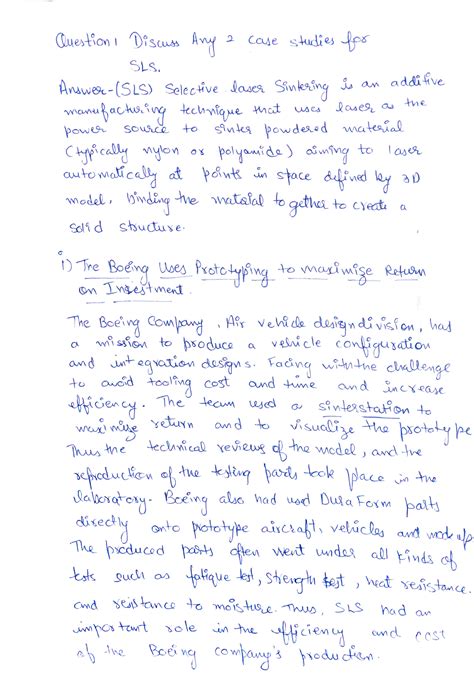 Question 1 Discuss Any 2 case studies for
SLS.
Answer-(SLS) Selective laser Sintering is an additive
manufacturing technique that uses laser as the
power source to sinter powdered material
(typically nylon or polyamide) aiming to laser
automatically at points in space defined by 3D
model, binding the material together to create a
solid structure.
i) The Boeing Uses Prototyping to maximize Return
on Investment.
The Boeing Company, Air vehicle design division, had
a mission to produce a vehicle configuration
and integration designs. Facing with the challenge
to avoid tooling cost and time and increase
efficiency. The team used a sinterstation to
maximize return and to visualize the prototype
Thus the technical reviews of the model, and the
reproduction of the testing parts took place in the
laboratory. Boeing also had used DuraForm parts
directly onto prototype aircraft, vehicles and mock up.
The produced parts often went under all kinds of
tests such as fatigue test, strength test, heat resistance.
and resistance to moisture. Thus, SLS had an
important role in the efficiency and cost
of the Boeing company's production.